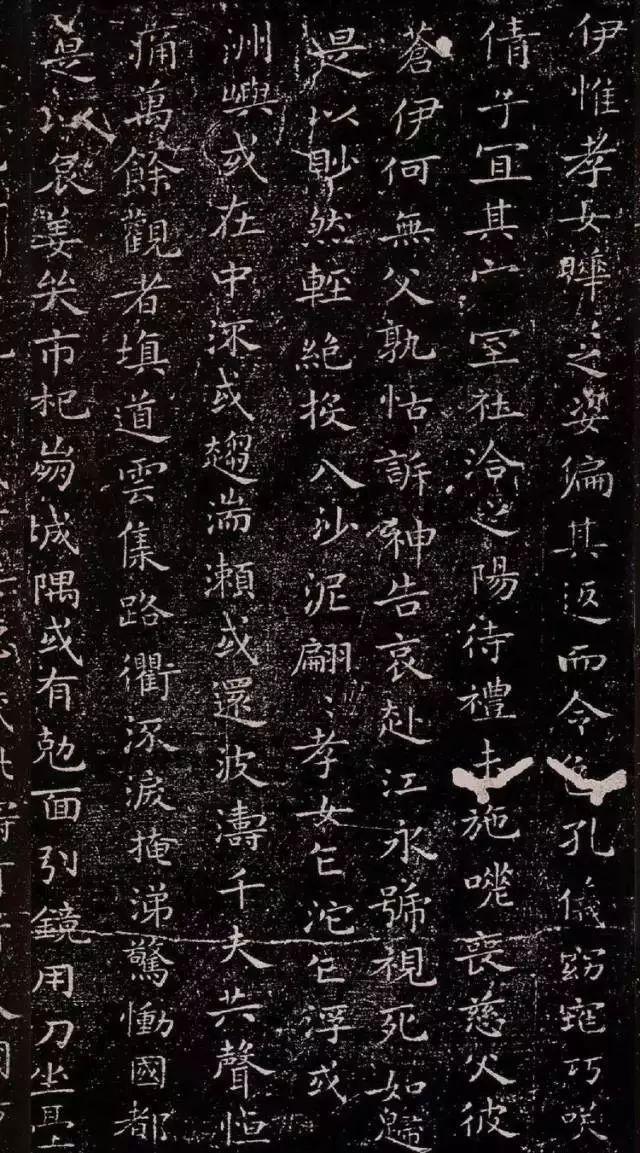 伊惟孝女曄〻之姿偏其返而令色孔儀窈窕巧咲
倩兮宜其室家在洽之陽待禮未施嗟喪慈父彼
蒼伊何無父孰怙訴神告哀赴江永號視死如歸
是以眇然輕絕投入沙泥翩〻孝女乍沈乍浮或
洲嶼或在中流或趨湍瀨或還波濤千夫共聲悼
痛萬餘觀者填道雲集路衢流淚掩涕驚慟國都
是以哀姜哭市杞崩城隅或有勊面引鏡用刀坐臺